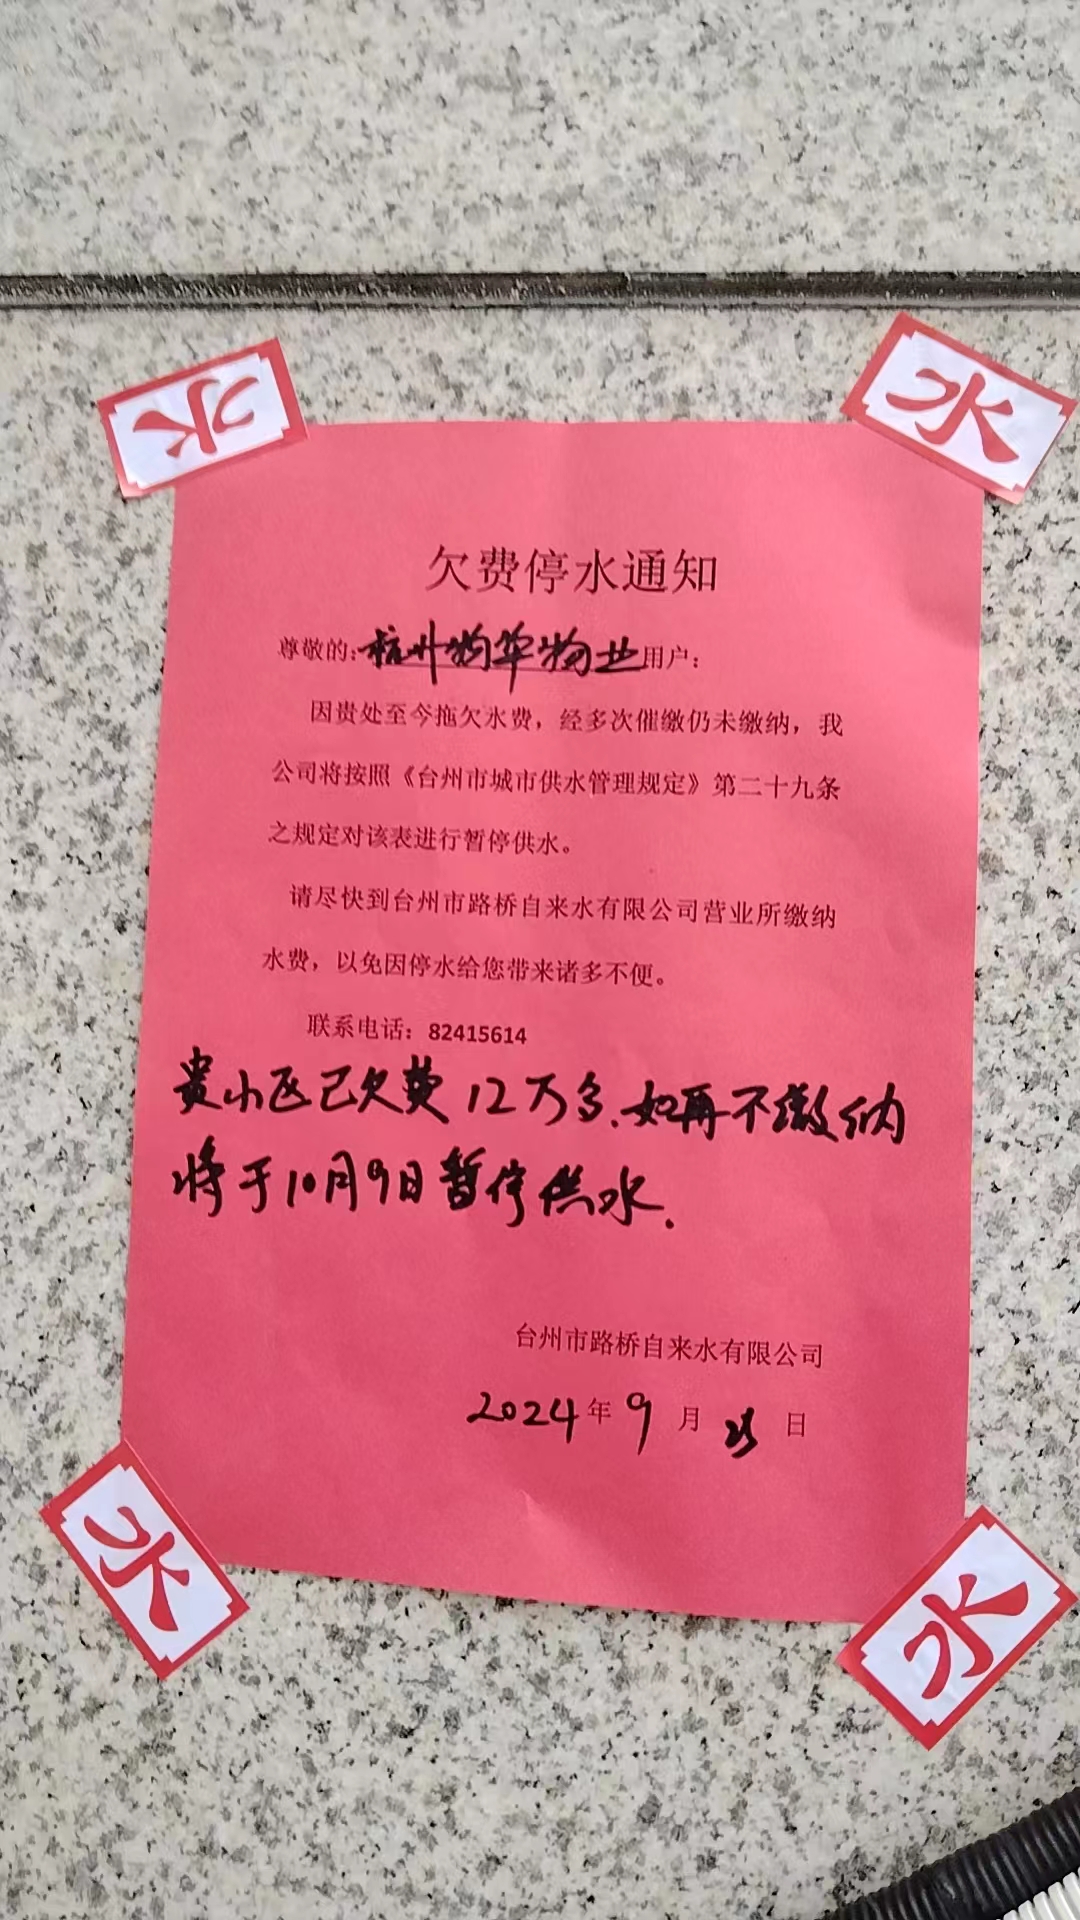 水
水
欠费停水通知
尊敬的：杭州物华物业用户：
因贵处至今拖欠水费，经多次催缴仍未缴纳，我
公司将按照《台州市城市供水管理规定》第二十九条
之规定对该表进行暂停供水。
请尽快到台州市路桥自来水有限公司营业所缴纳
水费，以免因停水给您带来诸多不便。
联系电话：82415614
贵小区已欠费12万多.如再不缴纳
将于10月9日暂停供水.
台州市路桥自来水有限公司
2024年9月 日
水
水